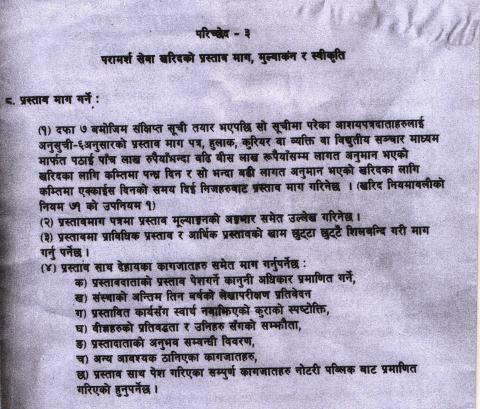 परिच्छेद - ३
परामर्श सेवा खरिदको प्रस्ताव माग, मुल्याकंन र स्वीकृति
८. प्रस्ताव माग गर्ने :
(१) दफा ७ बमोजिम संक्षिप्त सूची तयार भएपछि सो सूचीमा परेका आशयपत्रदाताहरुलाई
अनुसुची-६अनुसारको प्रस्ताव माग पत्र, हुलाक, कुरियर वा व्यक्ति वा विधुतीय सञ्चार माध्यम
मार्फत पठाई पाँच लाख रुपैयाँभन्दा बढि बीस लाख रूपैयाँसम्म लागत अनुमान भएको
खरिदका लागि कम्तिमा पन्ध्र दिन र सो भन्दा बढी लागत अनुमान भएको खरिदका लागि
कम्तिमा एक्काईस दिनको समय दिई निजहरुबाट प्रस्ताव माग गरिनेछ । (खरिद नियमावलीको
नियम ७१ को उपनियम १)
(२) प्रस्तावमाग पत्रमा प्रस्ताव मूल्याङ्कनको अङ्कभार समेत उल्लेख गरिनेछ ।
(३) प्रस्तावमा प्राविधिक प्रस्ताव र आर्थिक प्रस्तावको खाम छुट्टा छुट्टै शिलबन्दि गरी माग
गर्नु पर्नेछ ।
(४) प्रस्ताव साथ देहायका कागजातहरु समेत माग गर्नुपर्नेछ :
क) प्रस्तावदाताको प्रस्ताव पेशगर्ने कानुनी अधिकार प्रमाणित गर्ने,
ख) संस्थाको अन्तिम तिन बर्षको लेखापरीक्षण प्रतिवेदन
ग) प्रस्तावित कार्यसँग स्वार्थ नबाझिएको कुराको स्पष्टोक्ति,
घ) बीज्ञहरुको प्रतिवद्धता र उनिहरु सँगको सम्झौता,
ङ) प्रस्तादाताको अनुभव सम्वन्धी विवरण,
च) अन्य आवश्यक ठानिएका कागजातहरु,
छ) प्रस्ताव साथ पेश गरिएका सम्पुर्ण कागजातहरु नोटरी पब्लिक बाट प्रमाणित
गरिएको हुनुपर्नेछ ।